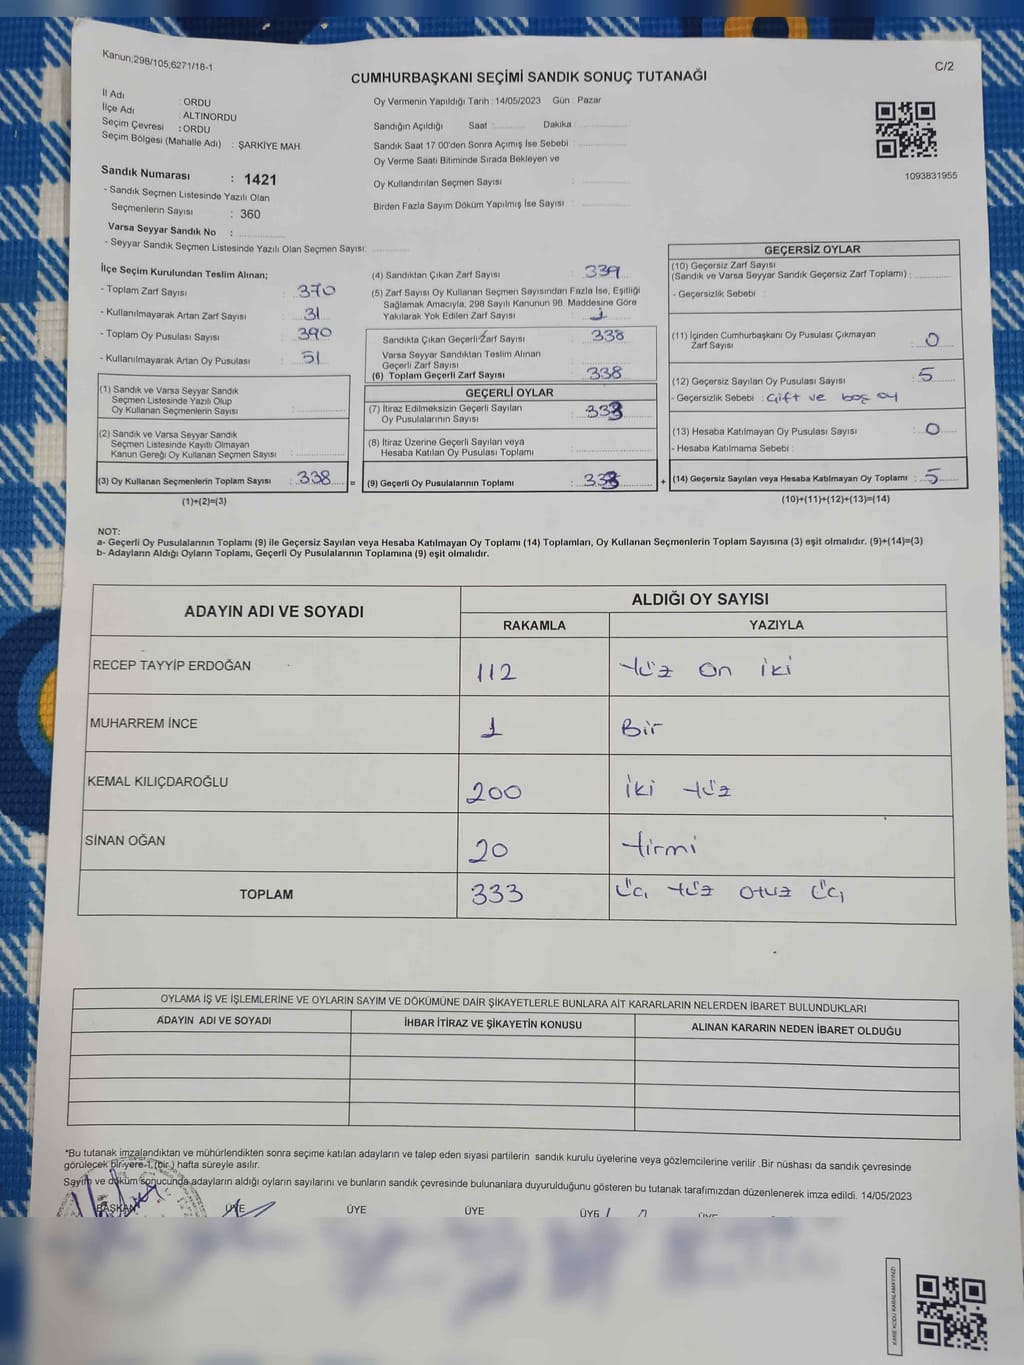 Kanun;298/105;6271/18-1
C/2
CUMHURBAŞKANI SEÇİMİ SANDIK SONUÇ TUTANAĞI
İl Adı : ORDU
İlçe Adı : ALTINORDU
Seçim Çevresi : ORDU
Seçim Bölgesi (Mahalle Adı) : ŞARKİYE MAH.
Sandık Numarası : 1421
- Sandık Seçmen Listesinde Yazılı Olan
Seçmenlerin Sayısı : 360
Varsa Seyyar Sandık No :
- Seyyar Sandık Seçmen Listesinde Yazılı Olan Seçmen Sayısı:
Oy Vermenin Yapıldığı Tarih : 14/05/2023 Gün : Pazar
Sandığın Açıldığı Saat Dakika
Sandık Saat 17.00'den Sonra Açımış İse Sebebi :
Oy Verme Saati Bitiminde Sırada Bekleyen ve
Oy Kullandırılan Seçmen Sayısı :
Birden Fazla Sayım Döküm Yapılmış İse Sayısı :
1093831955
İlçe Seçim Kurulundan Teslim Alınan;
- Toplam Zarf Sayısı : 370
- Kullanılmayarak Artan Zarf Sayısı : 31
- Toplam Oy Pusulası Sayısı : 390
- Kullanılmayarak Artan Oy Pusulası : 51
(1) Sandık ve Varsa Seyyar Sandık
Seçmen Listesinde Yazılı Olup
Oy Kullanan Seçmenlerin Sayısı :
(2) Sandık ve Varsa Seyyar Sandık
Seçmen Listesinde Kayıtlı Olmayan
Kanun Gereği Oy Kullanan Seçmen Sayısı :
(3) Oy Kullanan Seçmenlerin Toplam Sayısı : 338 =
(1)+(2)=(3)
(4) Sandıktan Çıkan Zarf Sayısı : 339
(5) Zarf Sayısı Oy Kullanan Seçmen Sayısından Fazla İse, Eşitliği
Sağlamak Amacıyla; 298 Sayılı Kanunun 98. Maddesine Göre
Yakılarak Yok Edilen Zarf Sayısı : 1
Sandıkta Çıkan Geçerli Zarf Sayısı : 338
Varsa Seyyar Sandıktan Teslim Alınan
Geçerli Zarf Sayısı :
(6) Toplam Geçerli Zarf Sayısı : 338
GEÇERLİ OYLAR
(7) İtiraz Edilmeksizin Geçerli Sayılan
Oy Pusulalarının Sayısı : 333
(8) İtiraz Üzerine Geçerli Sayılan veya
Hesaba Katılan Oy Pusulası Toplamı :
(9) Geçerli Oy Pusulalarının Toplamı : 333 +
GEÇERSİZ OYLAR
(10) Geçersiz Zarf Sayısı
(Sandık ve Varsa Seyyar Sandık Geçersiz Zarf Toplamı) :
- Geçersizlik Sebebi :
(11) İçinden Cumhurbaşkanı Oy Pusulası Çıkmayan
Zarf Sayısı : 0
(12) Geçersiz Sayılan Oy Pusulası Sayısı : 5
- Geçersizlik Sebebi : Çift ve boş oy
(13) Hesaba Katılmayan Oy Pusulası Sayısı : 0
- Hesaba Katılmama Sebebi :
(14) Geçersiz Sayılan veya Hesaba Katılmayan Oy Toplamı : 5
(10)+(11)+(12)+(13)=(14)
NOT:
a- Geçerli Oy Pusulalarının Toplamı (9) ile Geçersiz Sayılan veya Hesaba Katılmayan Oy Toplamı (14) Toplamları, Oy Kullanan Seçmenlerin Toplam Sayısına (3) eşit olmalıdır. (9)+(14)=(3)
b- Adayların Aldığı Oyların Toplamı, Geçerli Oy Pusulalarının Toplamına (9) eşit olmalıdır.
ADAYIN ADI VE SOYADI ALDIĞI OY SAYISI
RAKAMLA YAZIYLA
RECEP TAYYİP ERDOĞAN 112 Yüz on iki
MUHARREM İNCE 1 Bir
KEMAL KILIÇDAROĞLU 200 İki Yüz
SİNAN OĞAN 20 Yirmi
TOPLAM 333 Üç Yüz Otuz Üç
OYLAMA İŞ VE İŞLEMLERİNE VE OYLARIN SAYIM VE DÖKÜMÜNE DAİR ŞİKAYETLERLE BUNLARA AİT KARARLARIN NELERDEN İBARET BULUNDUKLARI
ADAYIN ADI VE SOYADI İHBAR İTİRAZ VE ŞİKAYETİN KONUSU ALINAN KARARIN NEDEN İBARET OLDUĞU
*Bu tutanak imzalandıktan ve mühürlendikten sonra seçime katılan adayların ve talep eden siyasi partilerin sandık kurulu üyelerine veya gözlemcilerine verilir .Bir nüshası da sandık çevresinde
görülecek bir yere 1 (bir) hafta süreyle asılır.
Sayım ve döküm sonucunda adayların aldığı oyların sayılarını ve bunların sandık çevresinde bulunanlara duyurulduğunu gösteren bu tutanak tarafımızdan düzenlenerek imza edildi. 14/05/2023
BAŞKAN ÜYE ÜYE ÜYE ÜYE ÜYE
KARE KODU KARALAMAYINIZ!